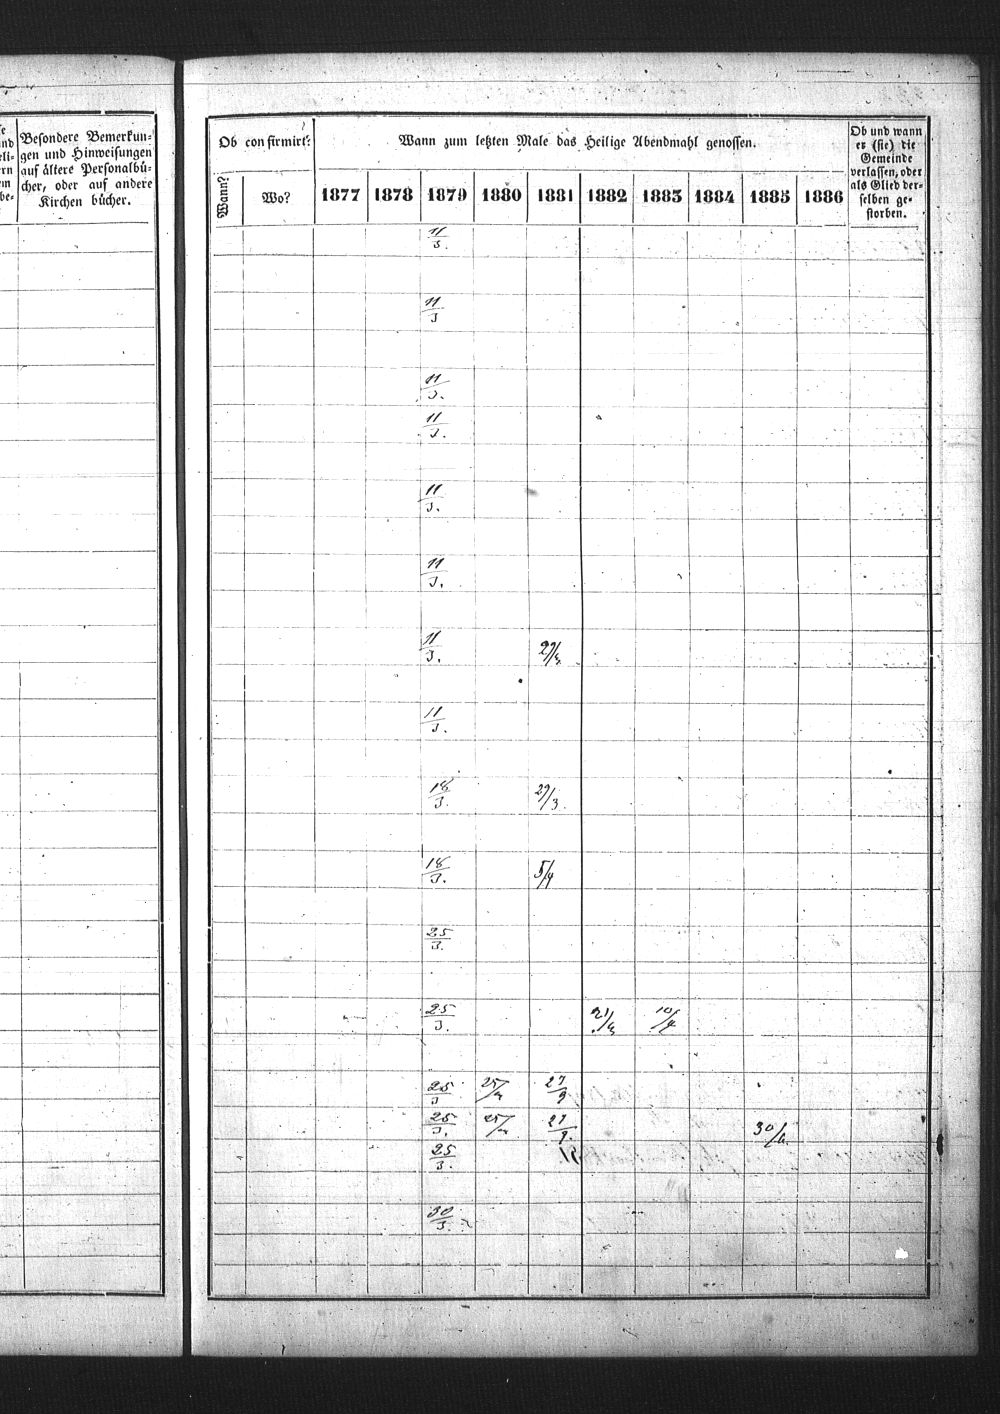 Besondere Bemerkun-
gen und Hinweisungen
auf ältere Personalbü-
cher, oder auf andere
Kirchen bücher.
Ob confirmirt?
Wann zum letzten Male das Heilige Abendmahl genossen.
Ob und wann
er (sie) die
Gemeinde
verlassen, oder
als Glied der-
selben ge-
storben.
Wann?
Wo?
1877 1878 1879 1880 1881 1882 1883 1884 1885 1886
11/3.
11/3
11/3.
11/3.
11/3.
11/3.
11/3.
11/3.
18/3. 29/3.
18/3. 5/4
25/3.
25/3. 10/4
25/3 27/9
25/3. 27/9.
25/3.
30/3.